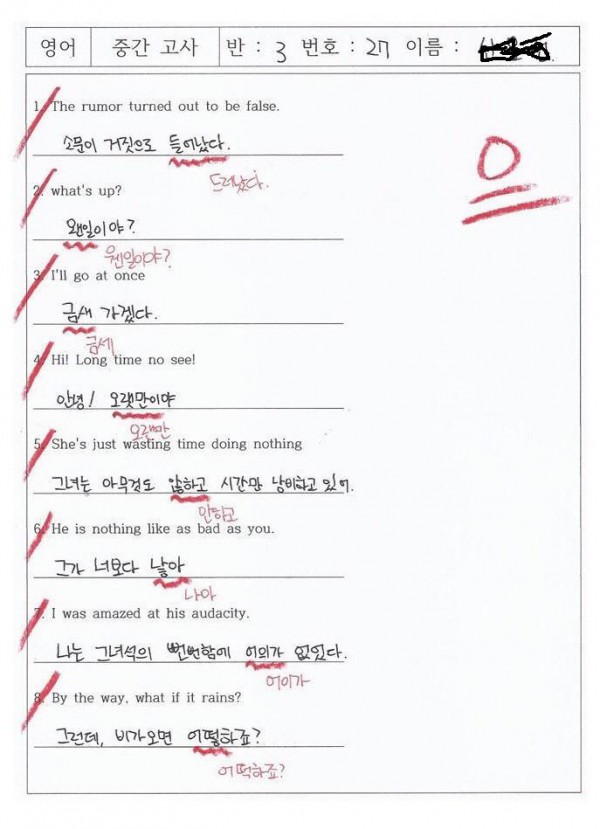 영어 중간 고사 반 : 3 번호 : 27 이름 :
1. The rumor turned out to be false.
소문이 거짓으로 들어났다.
드러났다.
2. what's up?
왠일이야?
웬일이야?
3. I'll go at once
금새 가겠다.
금세
4. Hi! Long time no see!
안녕! 오랫만이야
오랜만
5. She's just wasting time doing nothing
그녀는 아무것도 않하고 시간만 낭비하고 있어.
안하고
6. He is nothing like as bad as you.
그가 너보다 낳아
나아
7. I was amazed at his audacity.
나는 그녀석의 뻔뻔함에 어의가 없었다.
어이가
8. By the way, what if it rains?
그런데, 비가오면 어떻하죠?
어떡하죠?